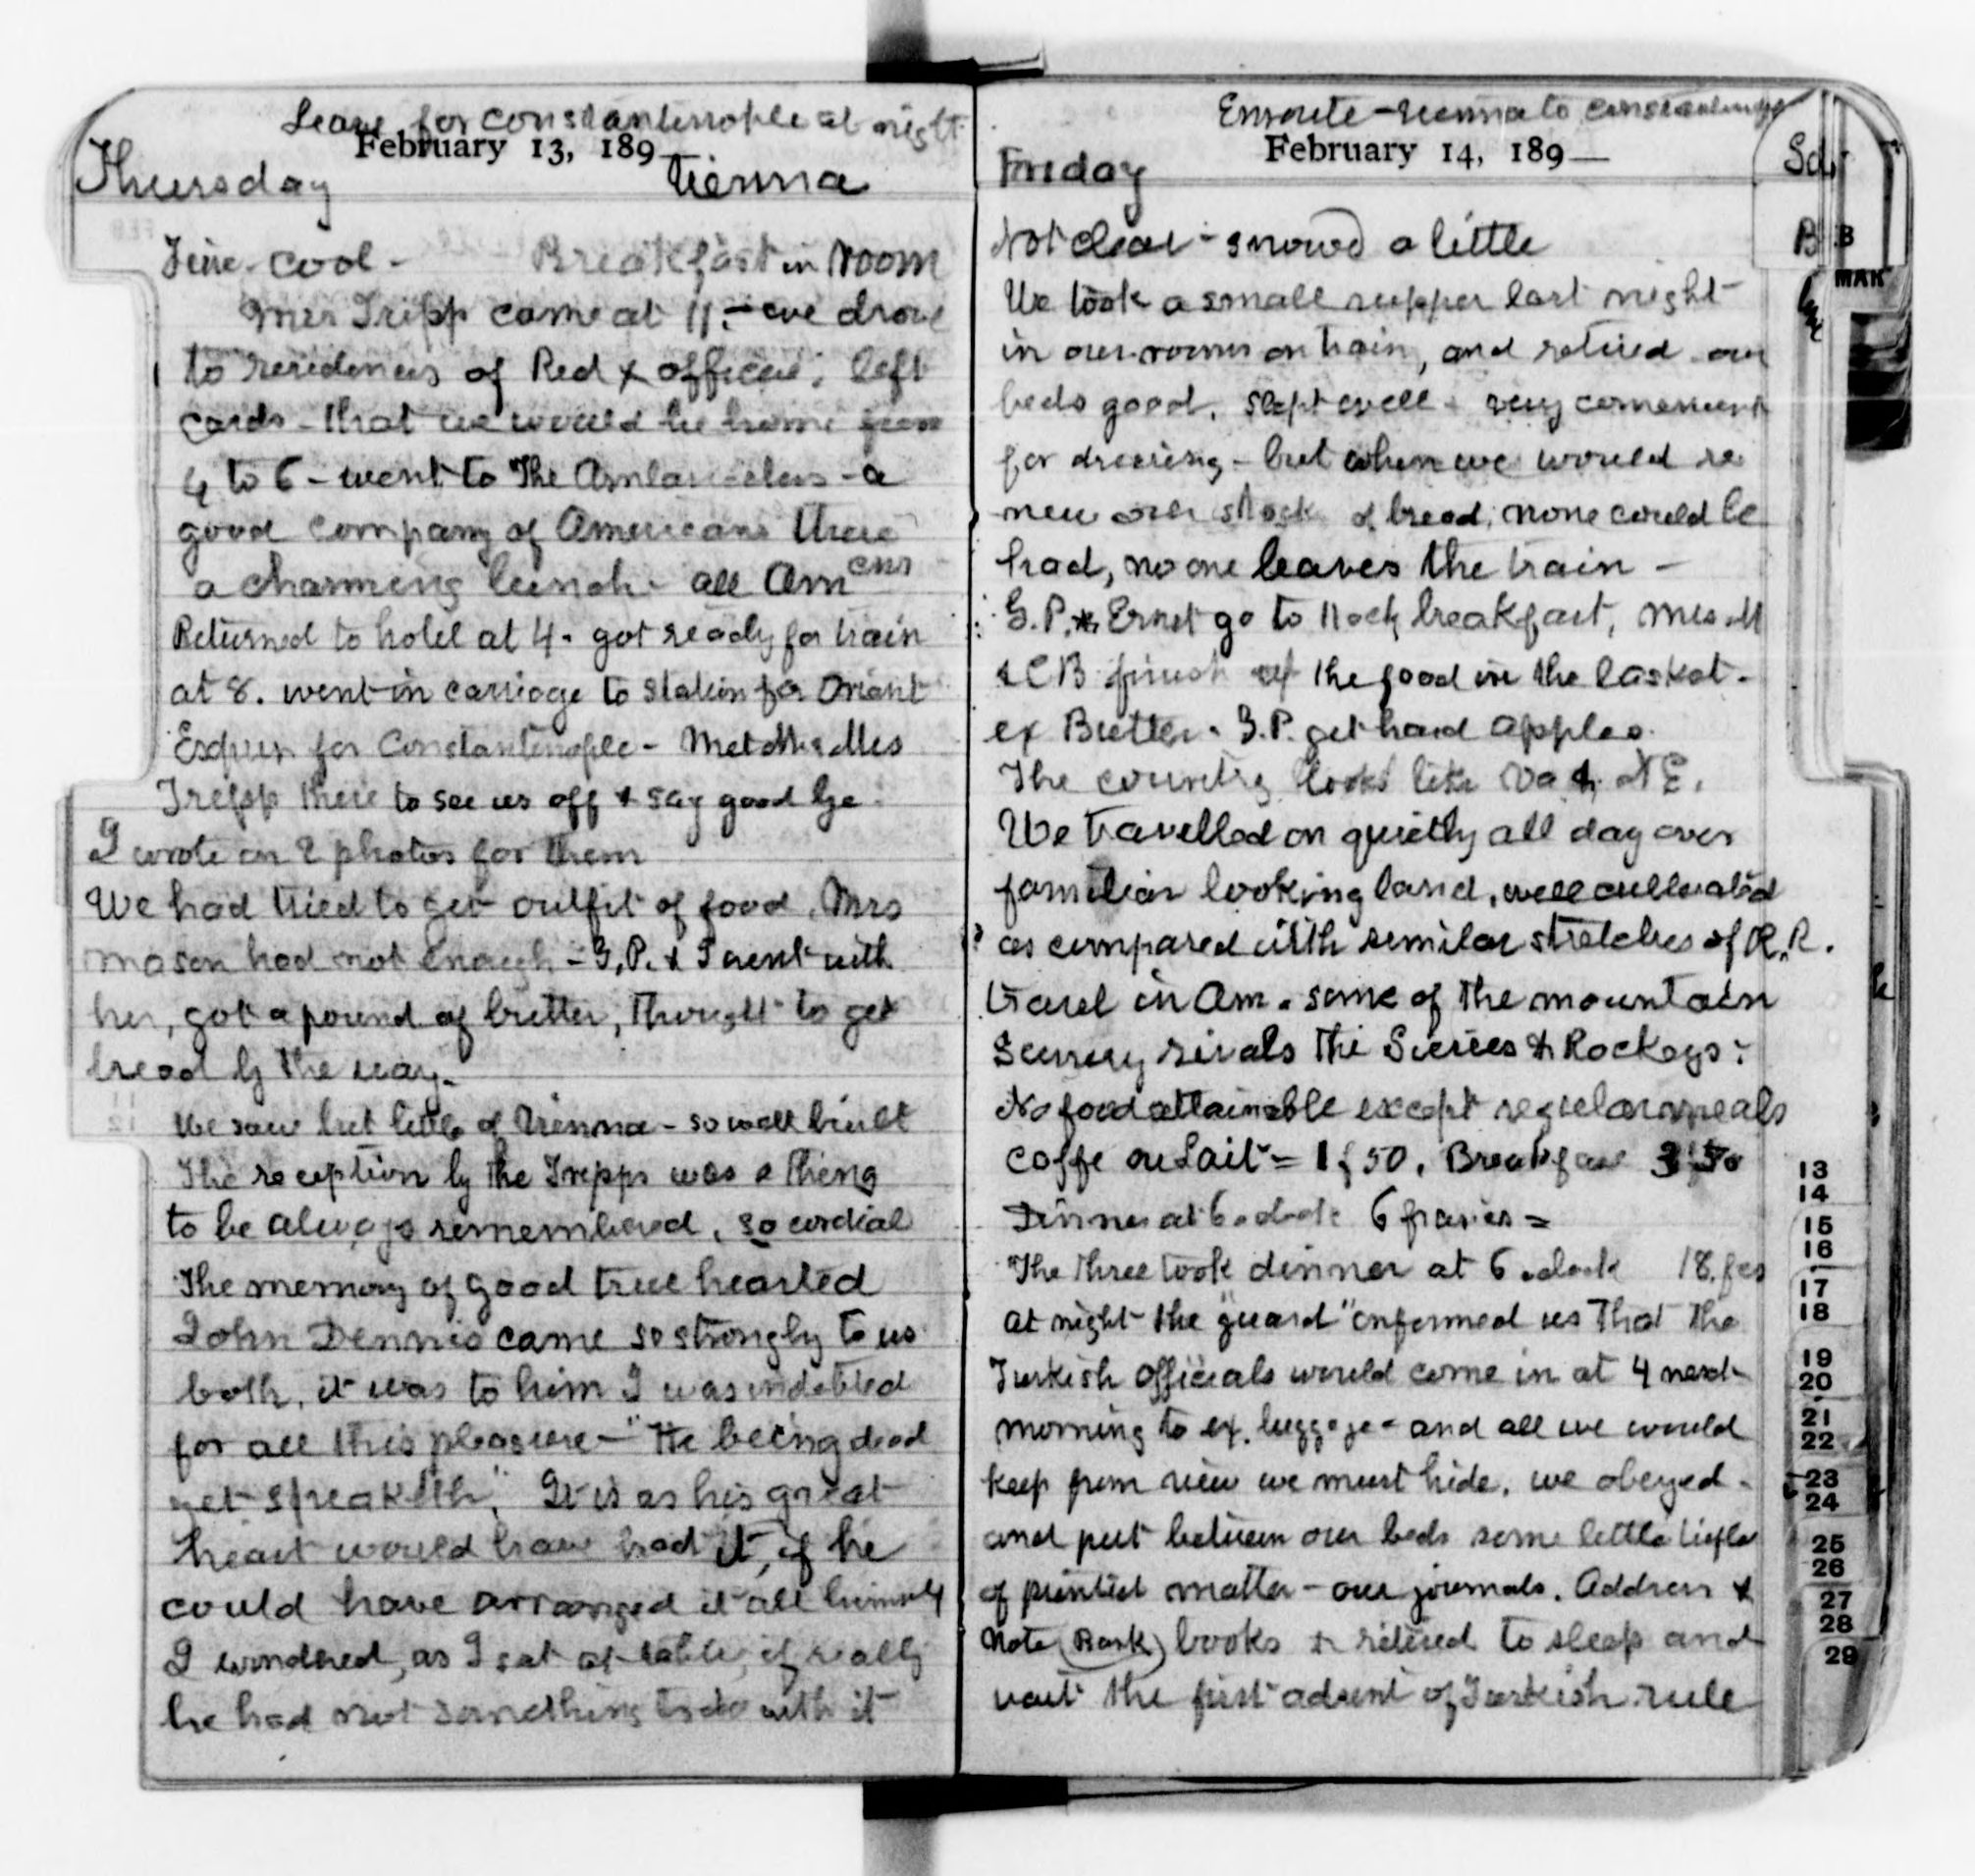 Leave for Constantinople at night
February 13, 189
Thursday Vienna
Fine - cool - Breakfast in room
Mrs Tripp came at 11 - we drove
to residences of Red X officers, left
cards - that we would be home from
4 to 6 - went to The Ambassadors - a
good company of Americans there
a charming lunch - all Amcns
Returned to hotel at 4 - got ready for train
at 8. went in carriage to station for Orient
Express for Constantinople - Met Mr & Mrs
Tripp there to see us off & say good bye.
I wrote on 2 photos for them
We had tried to get outfit of food, Mrs
Mason had not enough - G.P. & I went with
her, got a pound of butter, thought to get
bread by the way -
We saw but little of Vienna - so well built
The reception by the Tripps was a thing
to be always remembered, so cordial
The memory of good true hearted
John Dennis came so strongly to us
both, it was to him I was indebted
for all this pleasure - "He being dead
yet speaketh," It is as his great
heart would have had it, if he
could have arranged it all himself
I wondered, as I sat at table, if really
he had not something to do with it
Enroute - Vienna to Constantinople
February 14, 189
Friday
Not clear - snowed a little
We took a small supper last night
in our rooms on train, and retired our
beds good, slept well - very convenient
for dressing - but when we would re
new our stock of bread, none could be
had, no one leaves the train -
G.P. & Ernst go to 11 ock breakfast, Mrs. M
& CB finish up the food in the basket -
ex Butter - G.P. get hard apples.
The country looks like Va & N E.
We travelled on quietly all day over
familiar looking land, well cultivated
as compared with similar stretches of R.R.
travel in Am. some of the mountain
Scenery rivals the Sierres & Rockeys -
No food attainable except regular meals
Coffe au Lait = 1 f 50, Breakfast 3 f 50
Dinner at 6 oclock 6 francs =
The three took dinner at 6 oclock 18. fcs
at night the "guard" informed us that the
Turkish Officials would come in at 4 next
morning to ex. luggage - and all we would
keep from view we must hide, we obeyed -
and put between our beds some little
of printed matter - our journals. Address &
Note (Bank) books & retired to sleep and
wait the first advent of Turkish rule
Sd
B B
MAR
13
14
15
16
17
18
19
20
21
22
23
24
25
26
27
28
29